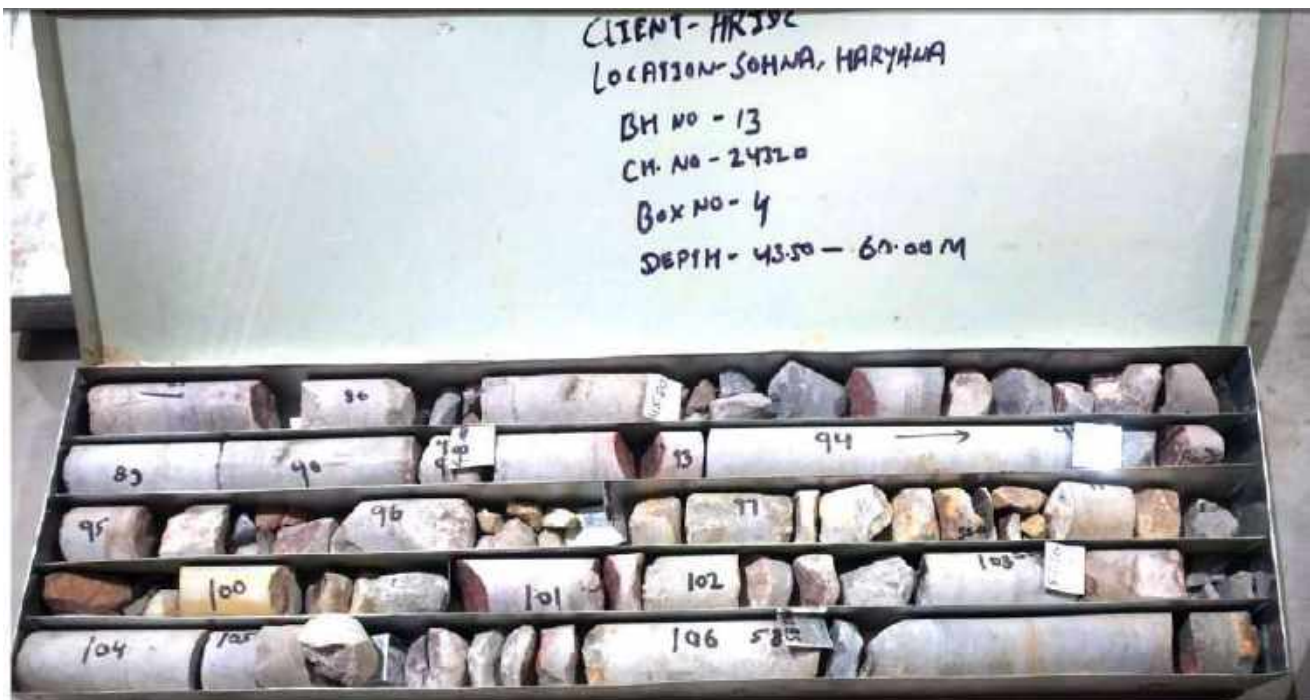 CLIENT- HRIDC
LOCATION-SOHNA, HARYANA
BH NO - 13
CH. NO - 24320
BOX NO - 4
DEPTH - 43.50 - 60.00 M
86
89 90 93 94 →
95 96 97
100 101 102 103
104 105 106 58